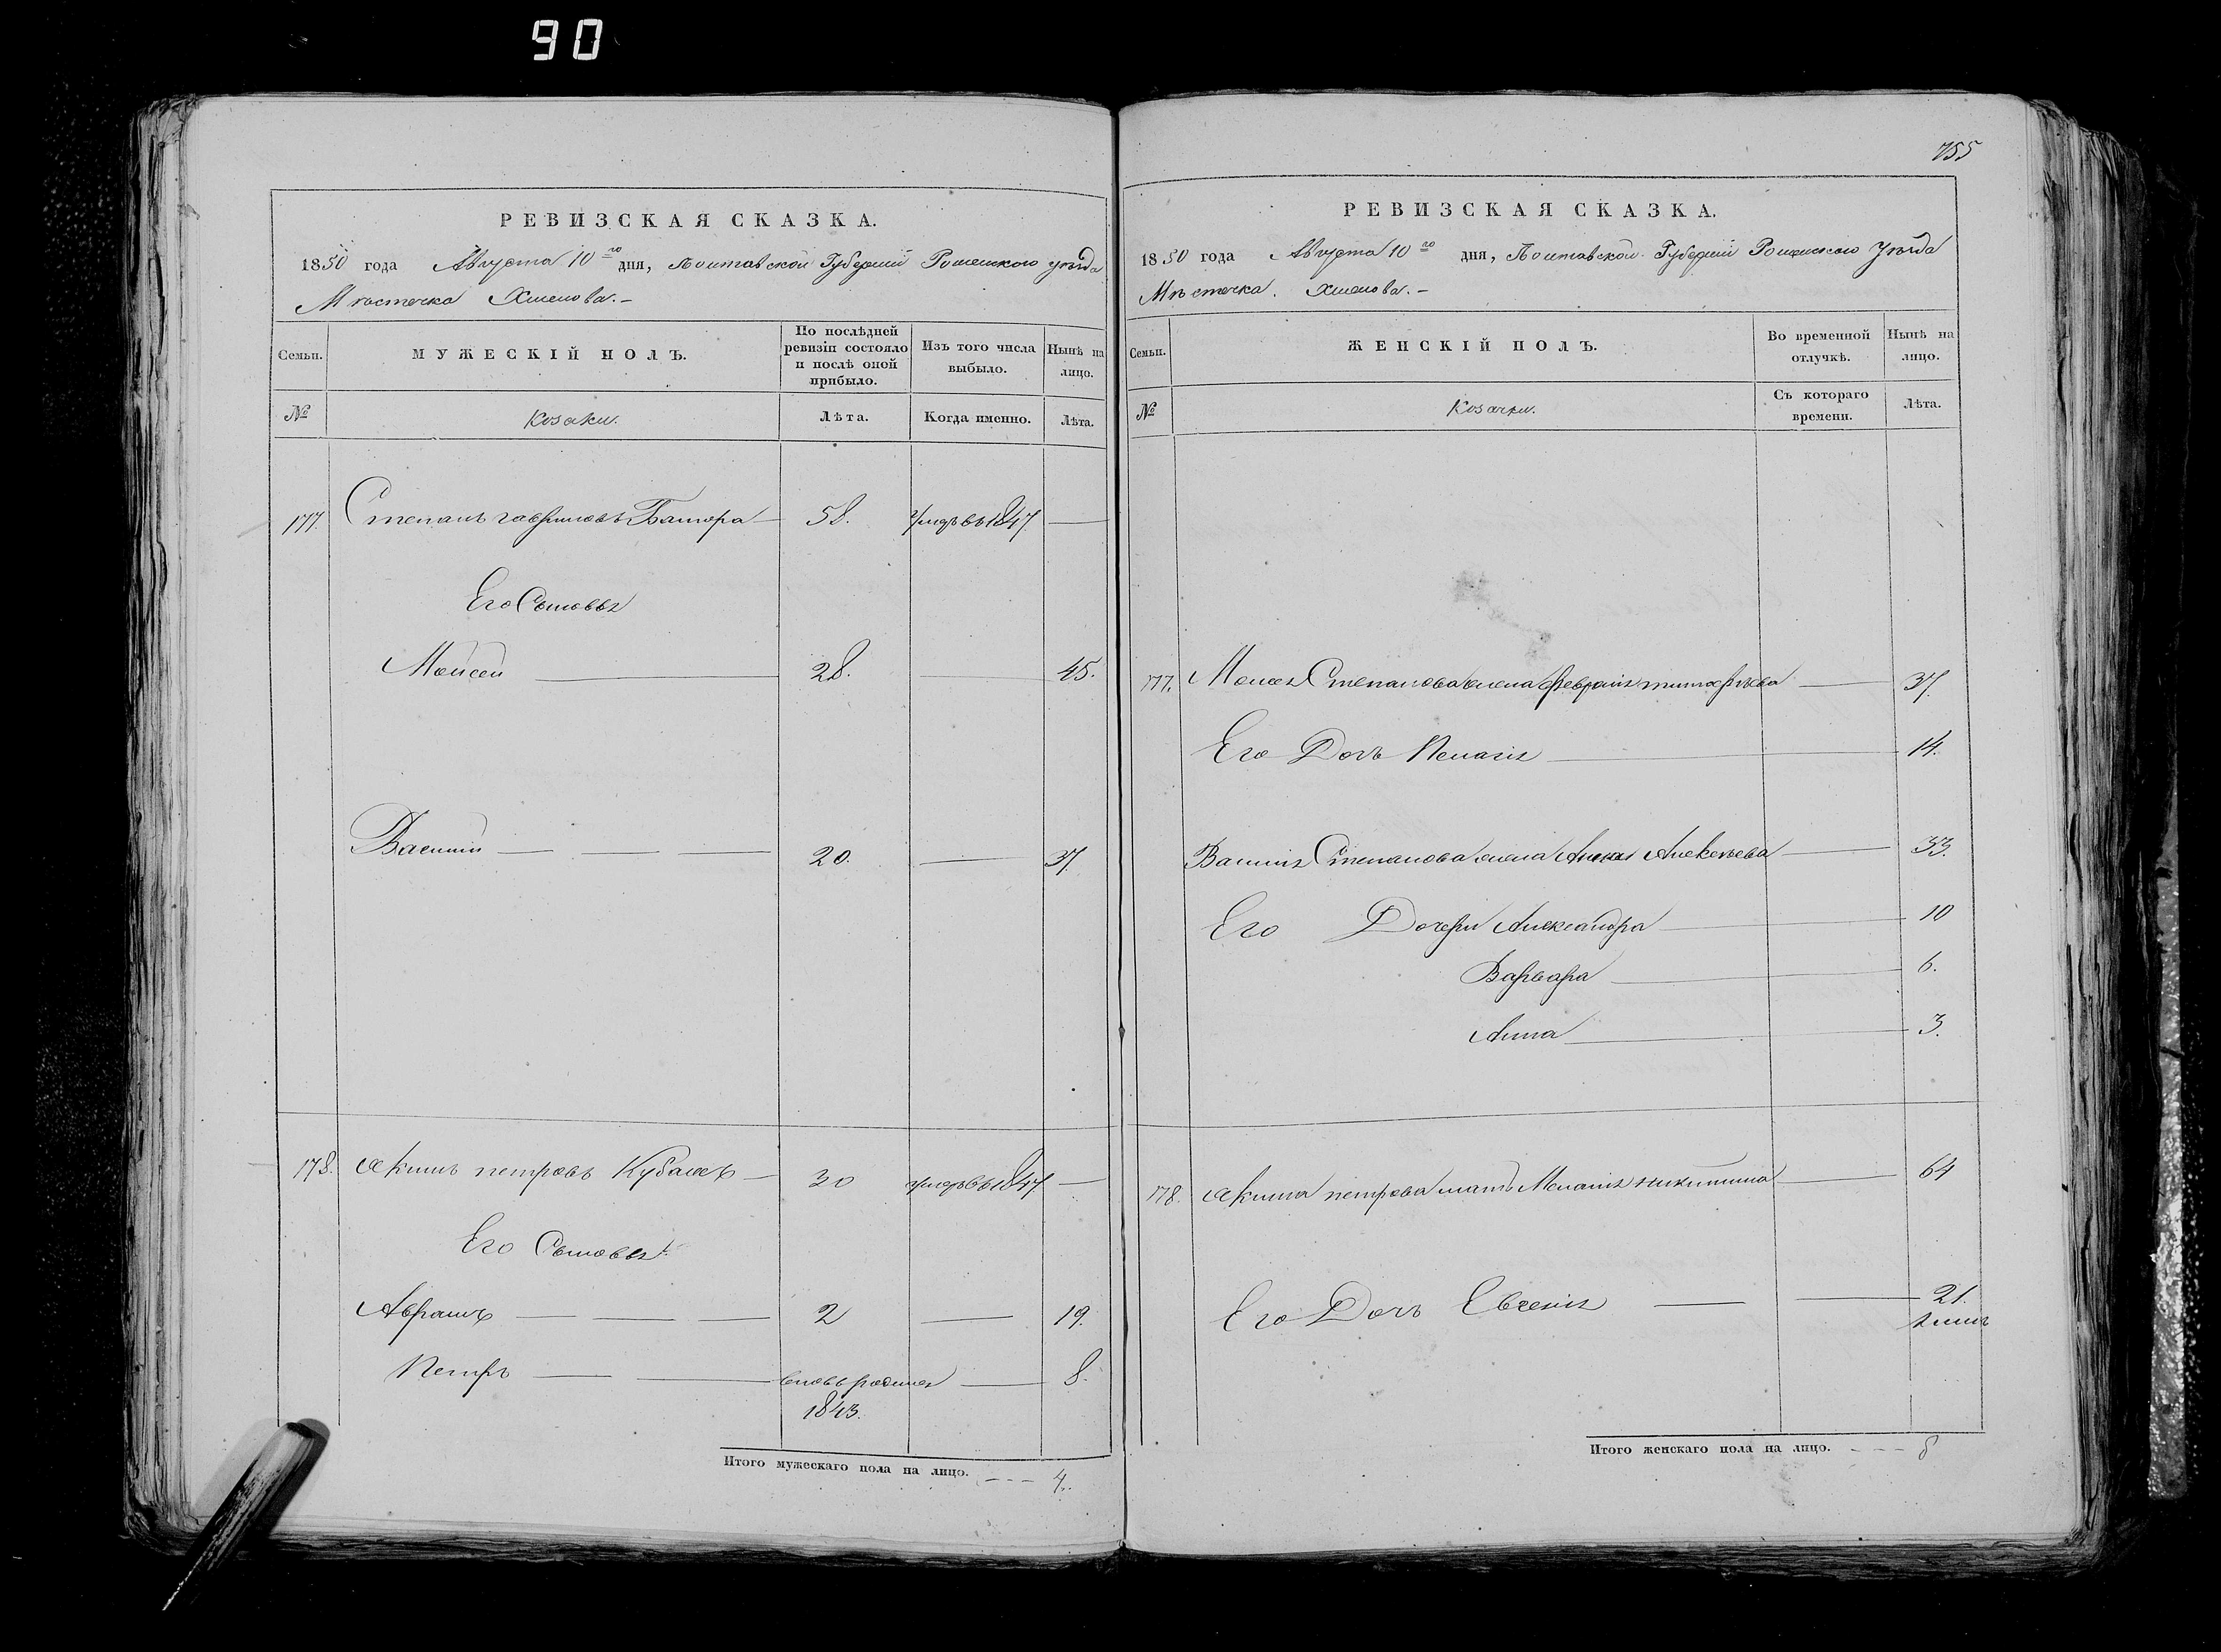 90
755
РЕВИЗСКАЯ СКАЗКА.
1850 года Августа 10го дня, Полтавской Губернии Роменского уѣзда
Мѣстечка Хмелова.–
Семьи.
МУЖЕСКІЙ ПОЛЪ.
По послѣдней ревизіи состояло и послѣ оной прибыло.
Изъ того числа выбыло.
Нынѣ на лицо.
№
Козаки.
Лѣта.
Когда именно.
Лѣта.
177. Степанъ гавриловъ 58. умеръ въ 1847 —
Его Сыновья
Мойсей — 28. — 45.
Василий — 20. — 37.
178. Акимъ петровъ 30 умеръ въ 1847 —
Его Сыновья:
Аврамъ — 2 — 19.
Петръ — вновь рожденъ — 8.
1843.
Итого мужескаго пола на лицо. - - - 4.
РЕВИЗСКАЯ СКАЗКА.
1850 года Августа 10го дня, Полтавской Губернии Роменского Уѣзда
Мѣстечка Хмелова.–
Семьи.
ЖЕНСКІЙ ПОЛЪ.
Во временной отлучкѣ.
Нынѣ на лицо.
№
Козачки.
Съ котораго времени.
Лѣта.
177. Моисея Степанова жена тимофѣева — 37.
Его Дочь Пелагия — 14.
Василия Степанова жена Алексѣева — 33.
Его Дочери Александра — 10
Варвара — 6.
Анна — 3.
178. Акима петрова мать Мелания никитина — 64
Его Дочь Евгения — 21.
Итого женскаго пола на лицо. - - - 8